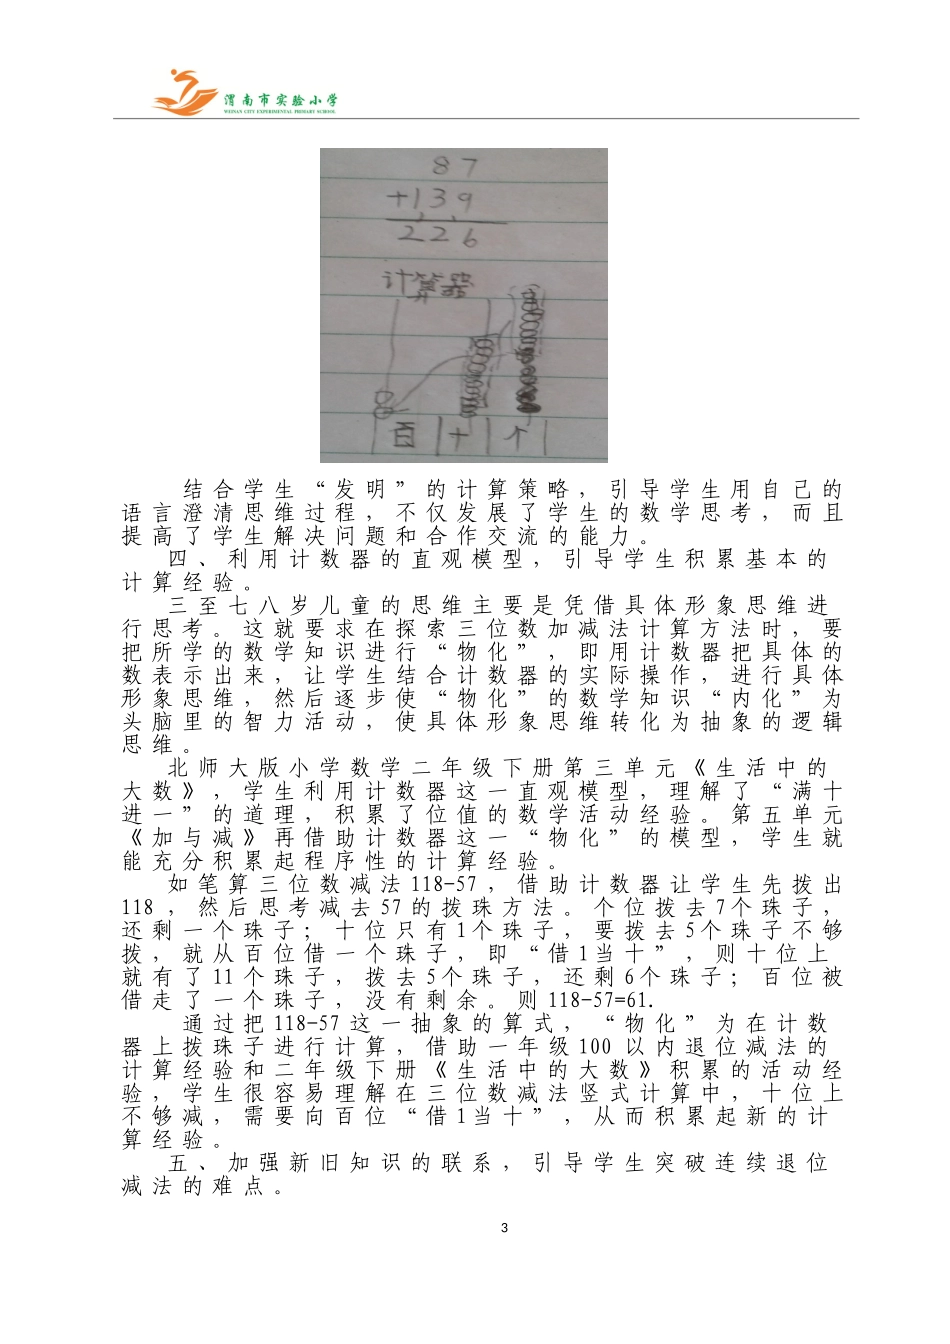 渭南市实验小学
WEINAN CITY EXPERIMENTAL PRIMARY SCHOOL
87
+139
226
计算器
百 十 个
结合学生“发明”的计算策略，引导学生用自己的
语言澄清思维过程，不仅发展了学生的数学思考，而且
提高了学生解决问题和合作交流的能力。
四、利用计数器的直观模型，引导学生积累基本的
计算经验。
三至七八岁儿童的思维主要是凭借具体形象思维进
行思考。这就要求在探索三位数加减法计算方法时，要
把所学的数学知识进行“物化”，即用计数器把具体的
数表示出来，让学生结合计数器的实际操作，进行具体
形象思维，然后逐步使“物化”的数学知识“内化”为
头脑里的智力活动，使具体形象思维转化为抽象的逻辑
思维。
北师大版小学数学二年级下册第三单元《生活中的
大数》，学生利用计数器这一直观模型，理解了“满十
进一”的道理，积累了位值的数学活动经验。第五单元
《加与减》再借助计数器这一“物化”的模型，学生就
能充分积累起程序性的计算经验。
如笔算三位数减法118-57，借助计数器让学生先拨出
118，然后思考减去57的拨珠方法。个位拨去7个珠子，
还剩一个珠子；十位只有1个珠子，要拨去5个珠子不够
拨，就从百位借一个珠子，即“借1当十”，则十位上
就有了11个珠子，拨去5个珠子，还剩6个珠子；百位被
借走了一个珠子，没有剩余。则118-57=61.
通过把118-57这一抽象的算式，“物化”为在计数
器上拨珠子进行计算，借助一年级100以内退位减法的
计算经验和二年级下册《生活中的大数》积累的活动经
验，学生很容易理解在三位数减法竖式计算中，十位上
不够减，需要向百位“借1当十”，从而积累起新的计
算经验。
五、加强新旧知识的联系，引导学生突破连续退位
减法的难点。
3